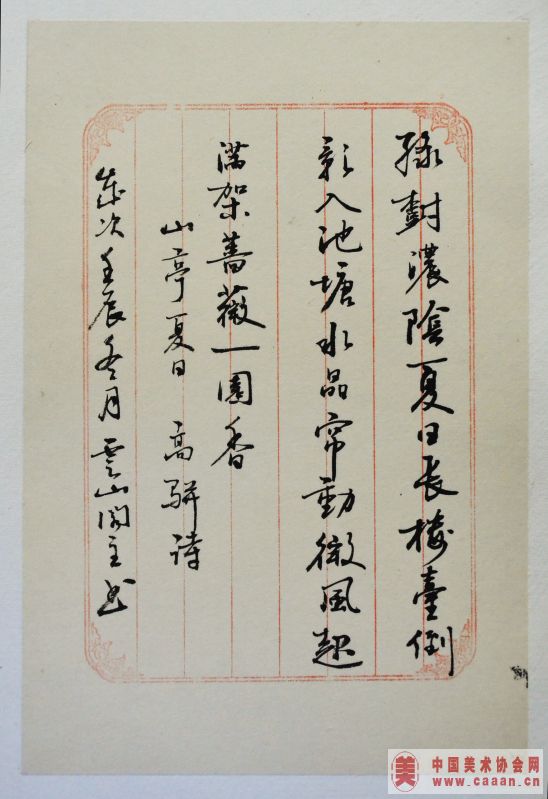 綠樹濃陰夏日長樓臺倒
影入池塘水晶帘動微風起
滿架薔薇一園香
山亭夏日 高駢詩
歲次壬辰冬月雲山閣主書
中国美术协会网
www.caaan.cn